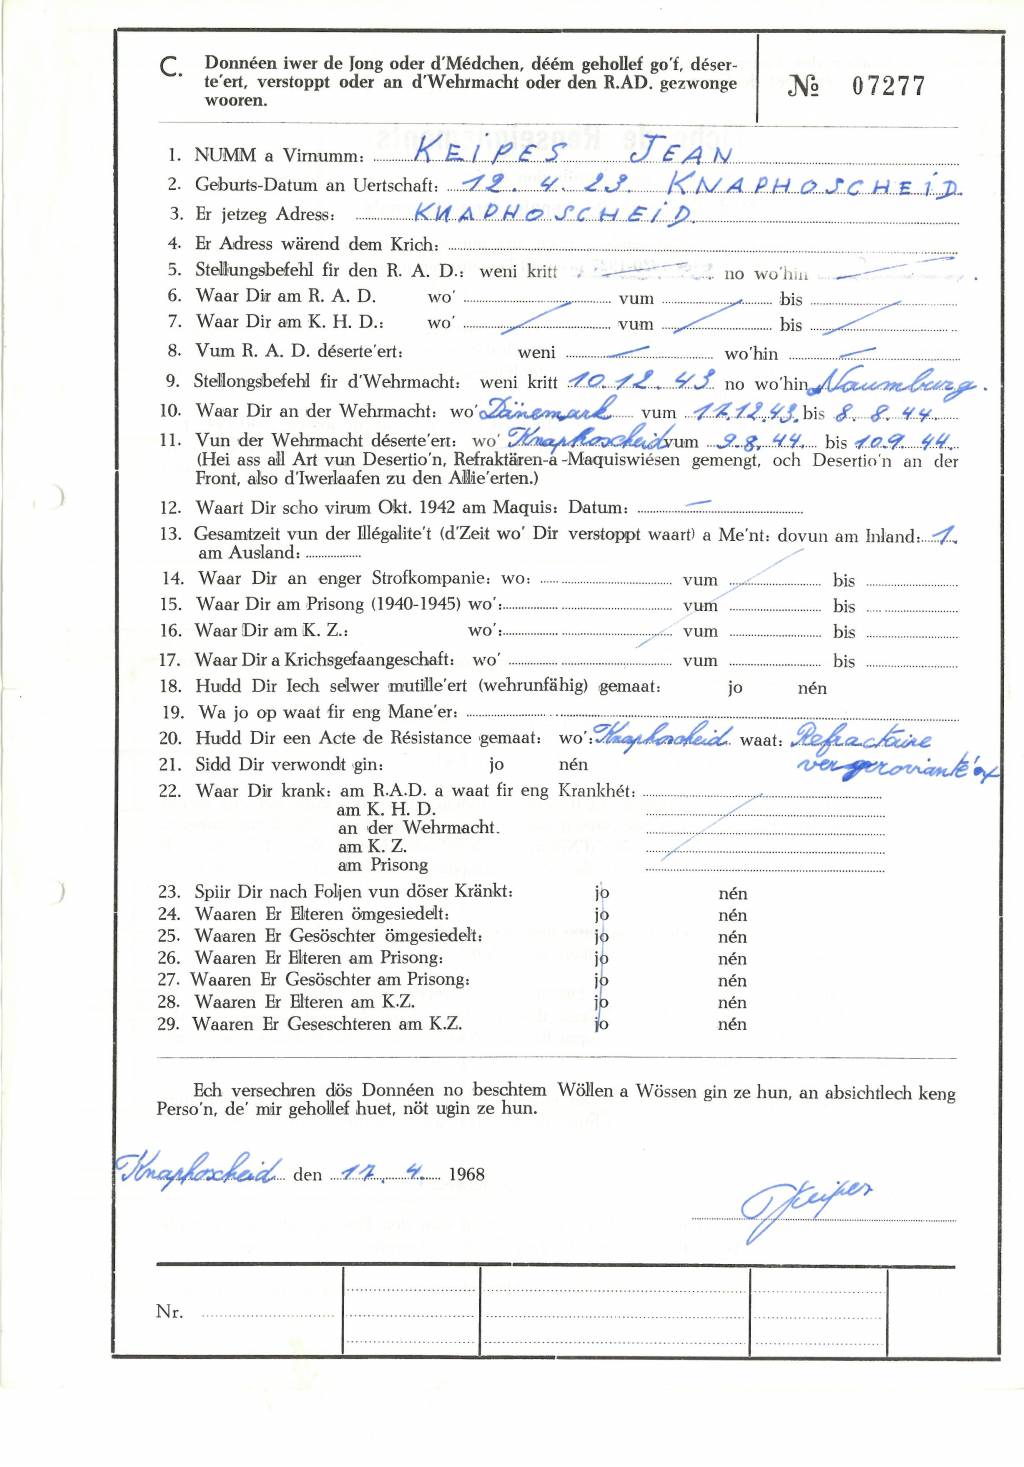 C. Donnéen iwer de Jong oder d'Médchen, déém gehollef go'f, déser-
te'ert, verstoppt oder an d'Wehrmacht oder den R.AD. gezwonge
wooren.
№ 07277
1. NUMM a Virnumm: KEIPES JEAN
2. Geburts-Datum an Uertschaft: 12. 4. 23. KNAPHOSCHEID
3. Er jetzeg Adress: KNAPHOSCHEID.
4. Er Adress wärend dem Krich:
5. Stellungsbefehl fir den R. A. D.: weni kritt no wo'hin
6. Waar Dir am R. A. D. wo' vum bis
7. Waar Dir am K. H. D.: wo' vum bis
8. Vum R. A. D. déserte'ert: weni — wo'hin —
9. Stellongsbefehl fir d'Wehrmacht: weni kritt 10.12.43 no wo'hin Naumburg.
10. Waar Dir an der Wehrmacht: wo' Dänemark vum 17.12.43. bis 8. 8. 44.
11. Vun der Wehrmacht déserte'ert: wo' Knaphoscheid vum 9.8.44. bis 10.9.44.
(Hei ass all Art vun Desertio'n, Refraktären-a -Maquiswiésen gemengt, och Desertio'n an der
Front, also d'Iwerlaafen zu den Allie'erten.)
12. Waart Dir scho virum Okt. 1942 am Maquis: Datum: —
13. Gesamtzeit vun der Illégalite't (d'Zeit wo' Dir verstoppt waart) a Me'nt: dovun am Inland: 1.
am Ausland:
14. Waar Dir an enger Strofkompanie: wo: vum bis
15. Waar Dir am Prisong (1940-1945) wo': vum bis
16. Waar Dir am K. Z.: wo': vum bis
17. Waar Dir a Krichsgefaangeschaft: wo' vum bis
18. Hudd Dir Iech selwer mutille'ert (wehrunfähig) gemaat: jo nén
19. Wa jo op waat fir eng Mane'er:
20. Hudd Dir een Acte de Résistance gemaat: wo': Knaphoscheid. waat: Refractaire
21. Sidd Dir verwondt gin: jo nén
22. Waar Dir krank: am R.A.D. a waat fir eng Krankhét:
am K. H. D.
an der Wehrmacht.
am K. Z.
am Prisong
23. Spiir Dir nach Foljen vun döser Kränkt: jo nén
24. Waaren Er Elteren ömgesiedelt: jo nén
25. Waaren Er Gesöschter ömgesiedelt: jo nén
26. Waaren Er Elteren am Prisong: jo nén
27. Waaren Er Gesöschter am Prisong: jo nén
28. Waaren Er Elteren am K.Z. jo nén
29. Waaren Er Geseschteren am K.Z. jo nén
Ech versechren dös Donnéen no beschtem Wöllen a Wössen gin ze hun, an absichtlech keng
Perso'n, de' mir gehollef huet, nöt ugin ze hun.
Knaphoscheid den 17. 4. 1968
Keipes
Nr.